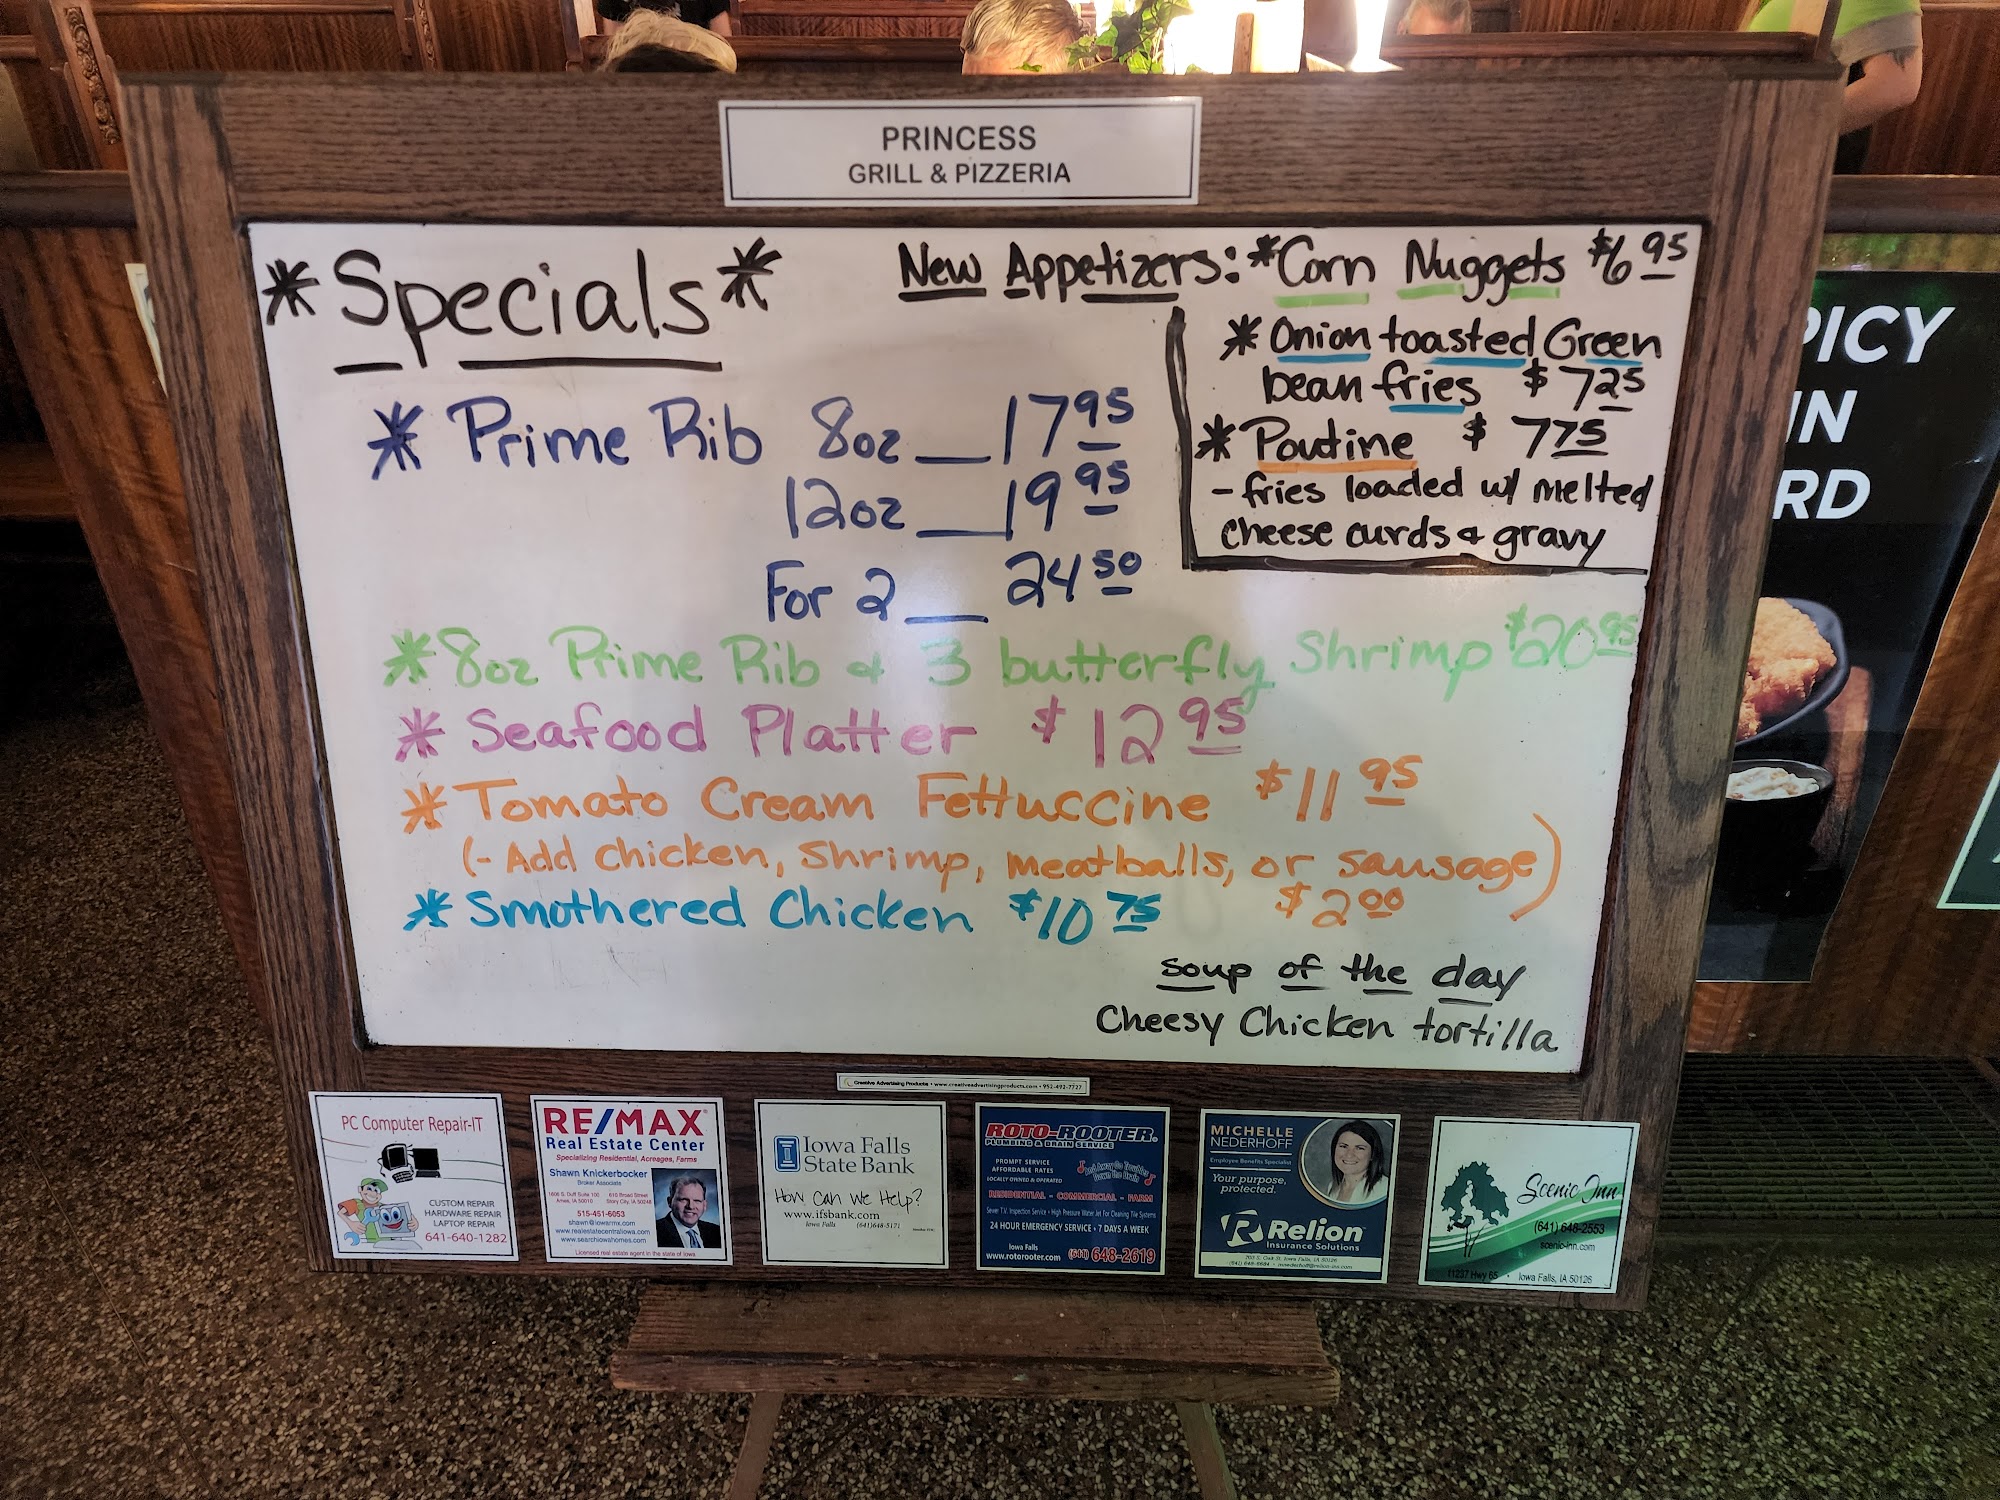 PRINCESS
GRILL & PIZZERIA
*Specials*
New Appetizers: *Corn Nuggets $6.95
* Onion toasted Green
bean fries $7.25
* Poutine $7.75
- fries loaded w/ melted
cheese curds & gravy
* Prime Rib 8oz __ 17.95
12oz __ 19.95
For 2 __ 24.50
* 8oz Prime Rib & 3 butterfly Shrimp $20.95
* Seafood Platter $12.95
* Tomato Cream Fettuccine $11.95
(- Add chicken, shrimp, meatballs, or sausage)
$2.00
* Smothered Chicken $10.75
soup of the day
Cheesy Chicken tortilla
PICY
IN
RD
Creative Advertising Products • www.creativeadvertisingproducts.com • 952-492-7727
PC Computer Repair-IT
CUSTOM REPAIR
HARDWARE REPAIR
LAPTOP REPAIR
641-640-1282
RE/MAX
Real Estate Center
Specializing Residential, Acreages, Farms
Shawn Knickerbocker
Broker Associate
515-451-6053
shawn@iowarmx.com
www.realestatecentraliowa.com
www.searchiowahomes.com
Licensed real estate agent in the state of Iowa
Iowa Falls
State Bank
How Can We Help?
www.ifsbank.com
Iowa Falls (641)648-5171
ROTO-ROOTER
PLUMBING & DRAIN SERVICE
PROMPT SERVICE
AFFORDABLE RATES
LOCALLY OWNED & OPERATED
And Away Go Troubles
Down the Drain
RESIDENTIAL - COMMERCIAL - FARM
Sewer T.V. Inspection Service • High Pressure Water Jet For Cleaning Tile Systems
24 HOUR EMERGENCY SERVICE • 7 DAYS A WEEK
Iowa Falls
www.rotorooter.com (641) 648-2619
MICHELLE
NEDERHOFF
Employee Benefits Specialist
Your purpose,
protected.
Relion
Insurance Solutions
Scenic Inn
(641) 648-2553
scenic-inn.com
11237 Hwy 65 • Iowa Falls, IA 50126